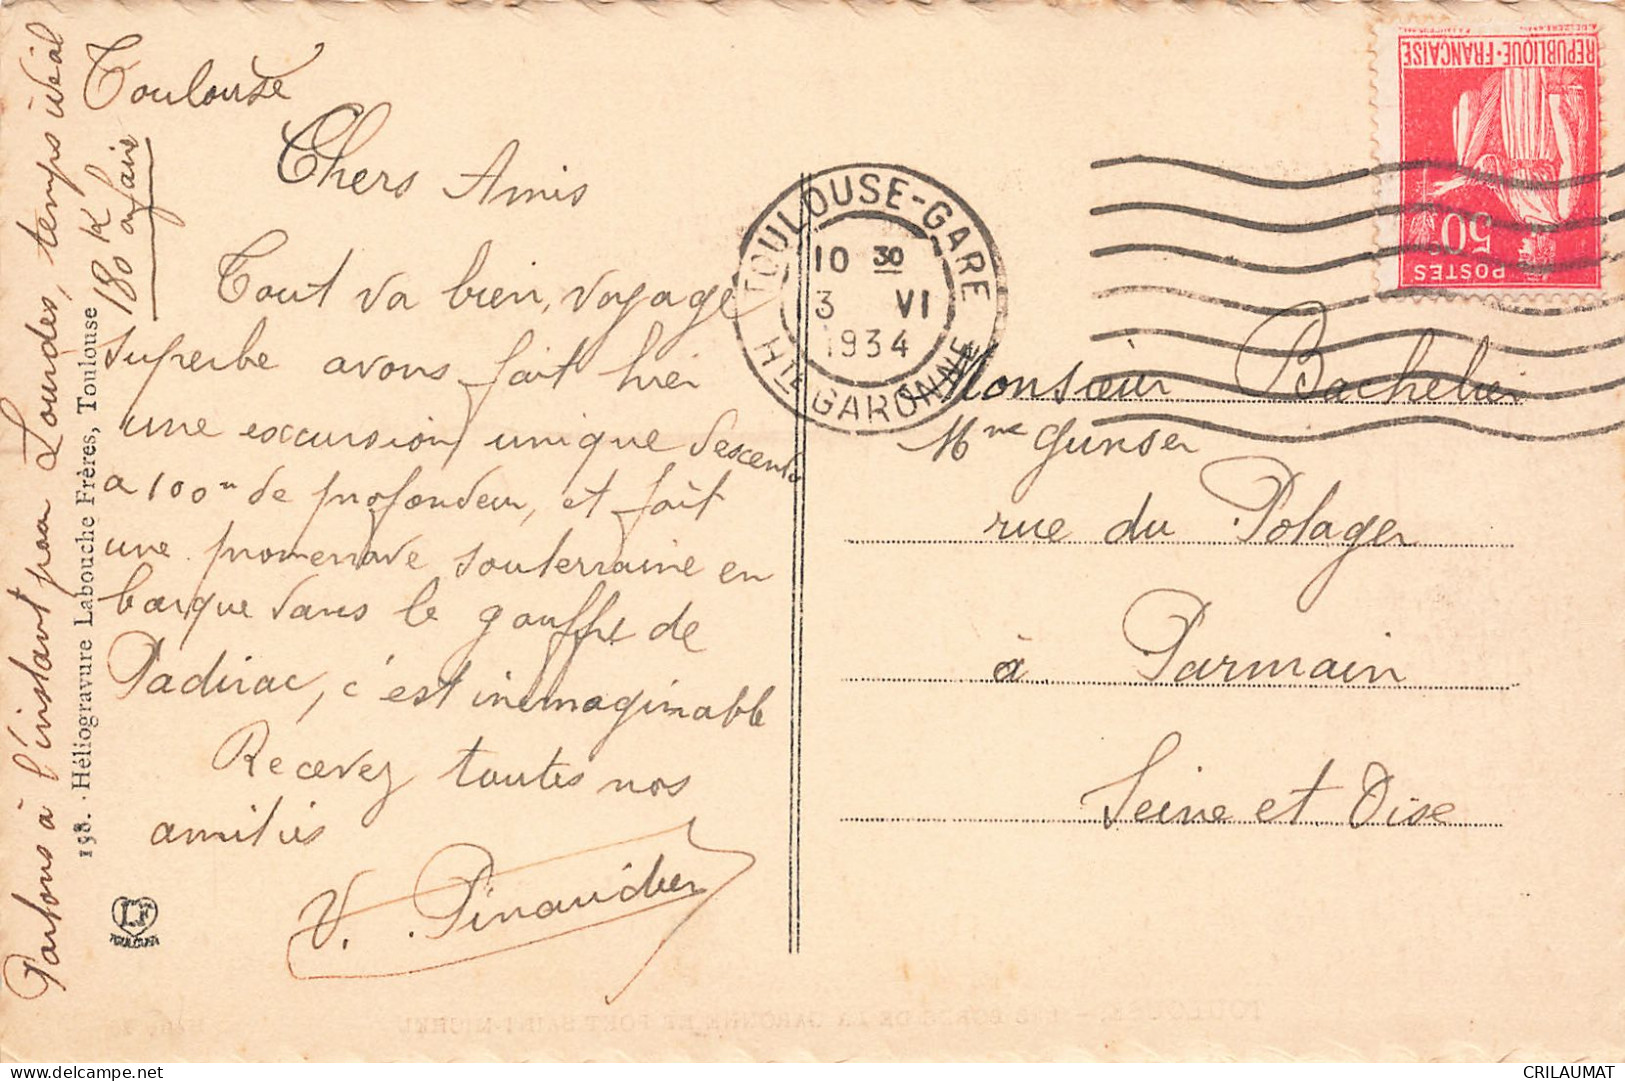 Toulouse
Chers Amis
Tout va bien, voyage
superbe avons fait hier
une excursion unique descendu
a 100m de profondeur, et fait
une promenade souterraine en
barque dans le gouffre de
Padirac, c'est inimaginable
Recevez toutes nos
amitiés
V. Pinaudier
Partons à l'instant pour Lourdes, temps idéal
180 K à faire
198. - Héliogravure Labouche Frères, Toulouse
LF
TOULOUSE
TOULOUSE-GARE
10 30
3 VI
1934
Hte GARONNE
REPUBLIQUE-FRANÇAISE
50c
POSTES
Monsieur Bachelier
Mme Gunser
rue du Potager
à Parmain
Seine et Oise
TOULOUSE. - LES BORDS DE LA GARONNE ET PONT SAINT-MICHEL
delcampe.net
CRILAUMAT